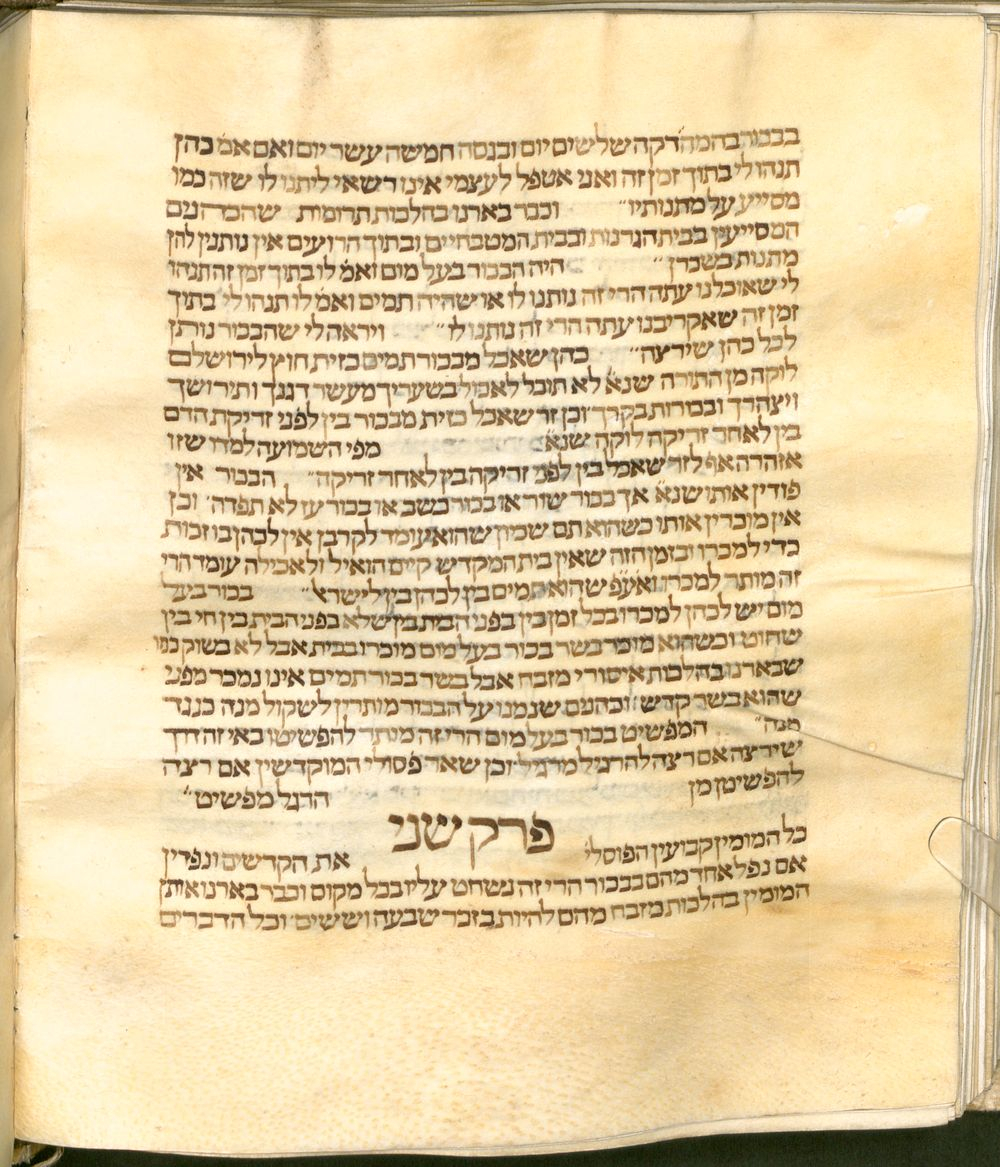 בבכור בהמה דקה שלשים יום ובגסה חמשה עשר יום ואם אמ׳ כהן
תנהו לי בתוך זמן זה ואני אטפל לעצמי אינו רשאי ליתנו לו שזה כמו
מסייע על מתנותיו׳׳ וכבר בארנו בהלכות תרומות שהכהנים
המסייעין בבית הגרנות ובבית המטבחיים ובתוך הרועים אין נותנין להן
מתנות בשכרן׳׳ היה הבכור בעל מום ואמ׳ לו בתוך זמן זה תנהו
לי שאוכלנו עתה הרי זה נותנו לו או שהיה תמים ואמ׳ לו תנהו לי בתוך
זמן זה שאקריבנו עתה הרי זה נותנו לו׳׳ ויראה לי שהבכור נותן
לכל כהן שירצה׳׳ כהן שאכל מבכור תמים כזית חוץ לירושלם
לוקה מן התורה שנא׳ לא תוכל לאכול בשעריך מעשר דגנך ותירושך
ויצהרך ובכורות בקרך׳ וכן זר שאכל כזית מבכור בין לפני זריקת הדם
בין לאחר זריקה לוקה שנא׳ מפי השמועה למדו שזו
אזהרה אף לזר שאכל בין לפני זריקה בין לאחר זריקה׳׳ הבכור אין
פודין אותו שנא׳ אך בכור שור או בכור כשב או בכור עז לא תפדה׳ וכן
אין מוכרין אותו כשהוא תם שמכיון שהוא עומד לקרבן אין לכהן בו זכות
כדי למכרו ובזמן הזה שאין בית המקדש קיים הואיל ולאכילה עומד הרי
זה מותר למכרו ואע׳פ שהוא תמים בין לכהן בין לישראל׳׳ בכור בעל
מום יש לכהן למכרו בכל זמן בין בפני הבית בין שלא בפני הבית בין חי בין
שחוט וכשהוא מוכר בשר בכור בעל מום מוכרו בבית אבל לא בשוק כמו
שבארנו בהלכות איסורי מזבח אבל בשר בכור תמים אינו נמכר מפני
שהוא בשר קדש׳ וכהנים שנמנו על הבכור מותרין לשקול מנה כנגד
מנה׳׳ המפשיט בכור בעל מום הרי זה מותר להפשיטו באי זה דרך
שירצה אם רצה להרגיל מרגיל׳ וכן שאר פסולי המוקדשין אם רצה
להפשיטן מן הרגל מפשיט׳׳
פרק שני
כל המומין קבועין הפוסלי׳ את הקדשים ונפדין
אם נפל אחד מהם בבכור הרי זה נשחט עליו בכל מקום וכבר בארנו אותן
המומין בהלכות מזבח מהם להיות בזכר שבעה וששים׳ וכל הדברים